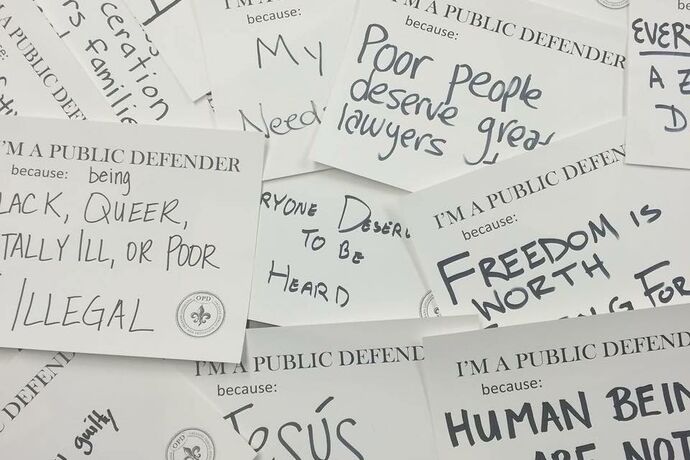 ceration
rs families
I'M A PUBLIC DEFEND
because:
My
Need
I'M A PUBLIC DEFENDER
because:
Poor people
deserve great
lawyers
EVERY
A Z
D
I'M A PUBLIC DEFENDER
because: being
LACK, QUEER,
TALLY ILL, OR POOR
ILLEGAL
OPD
RYONE DESER
TO BE
HEARD
I'M A PUBLIC DEFEN
because:
FREEDOM IS
WORTH
NG FOR
I'M A PUBLIC DEFEND
because:
Jesús
I'M A PUBLIC DEFEND
because:
HUMAN BEIN
ARE NOT
DEFEN
guilty
OPD